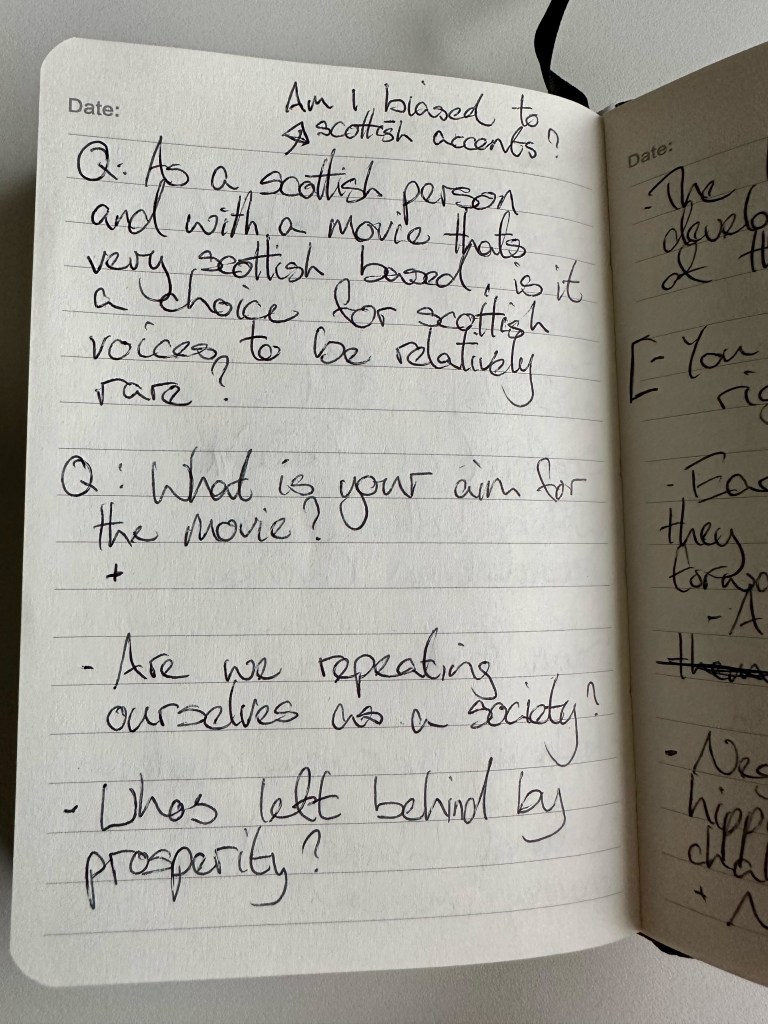 Date:
Am I biased to
scottish accents?
Q: As a scottish person
and with a movie thats
very scottish based, is it
a choice for scottish
voices to be relatively
rare?
Q: What is your aim for
the movie?
+
- Are we repeating
ourselves as a society?
- Whos left behind by
prosperity?
Date:
- The
develo
of th
[- You
rig
- Eas
they
- A
them
- Neg
hipp
chal
+ N